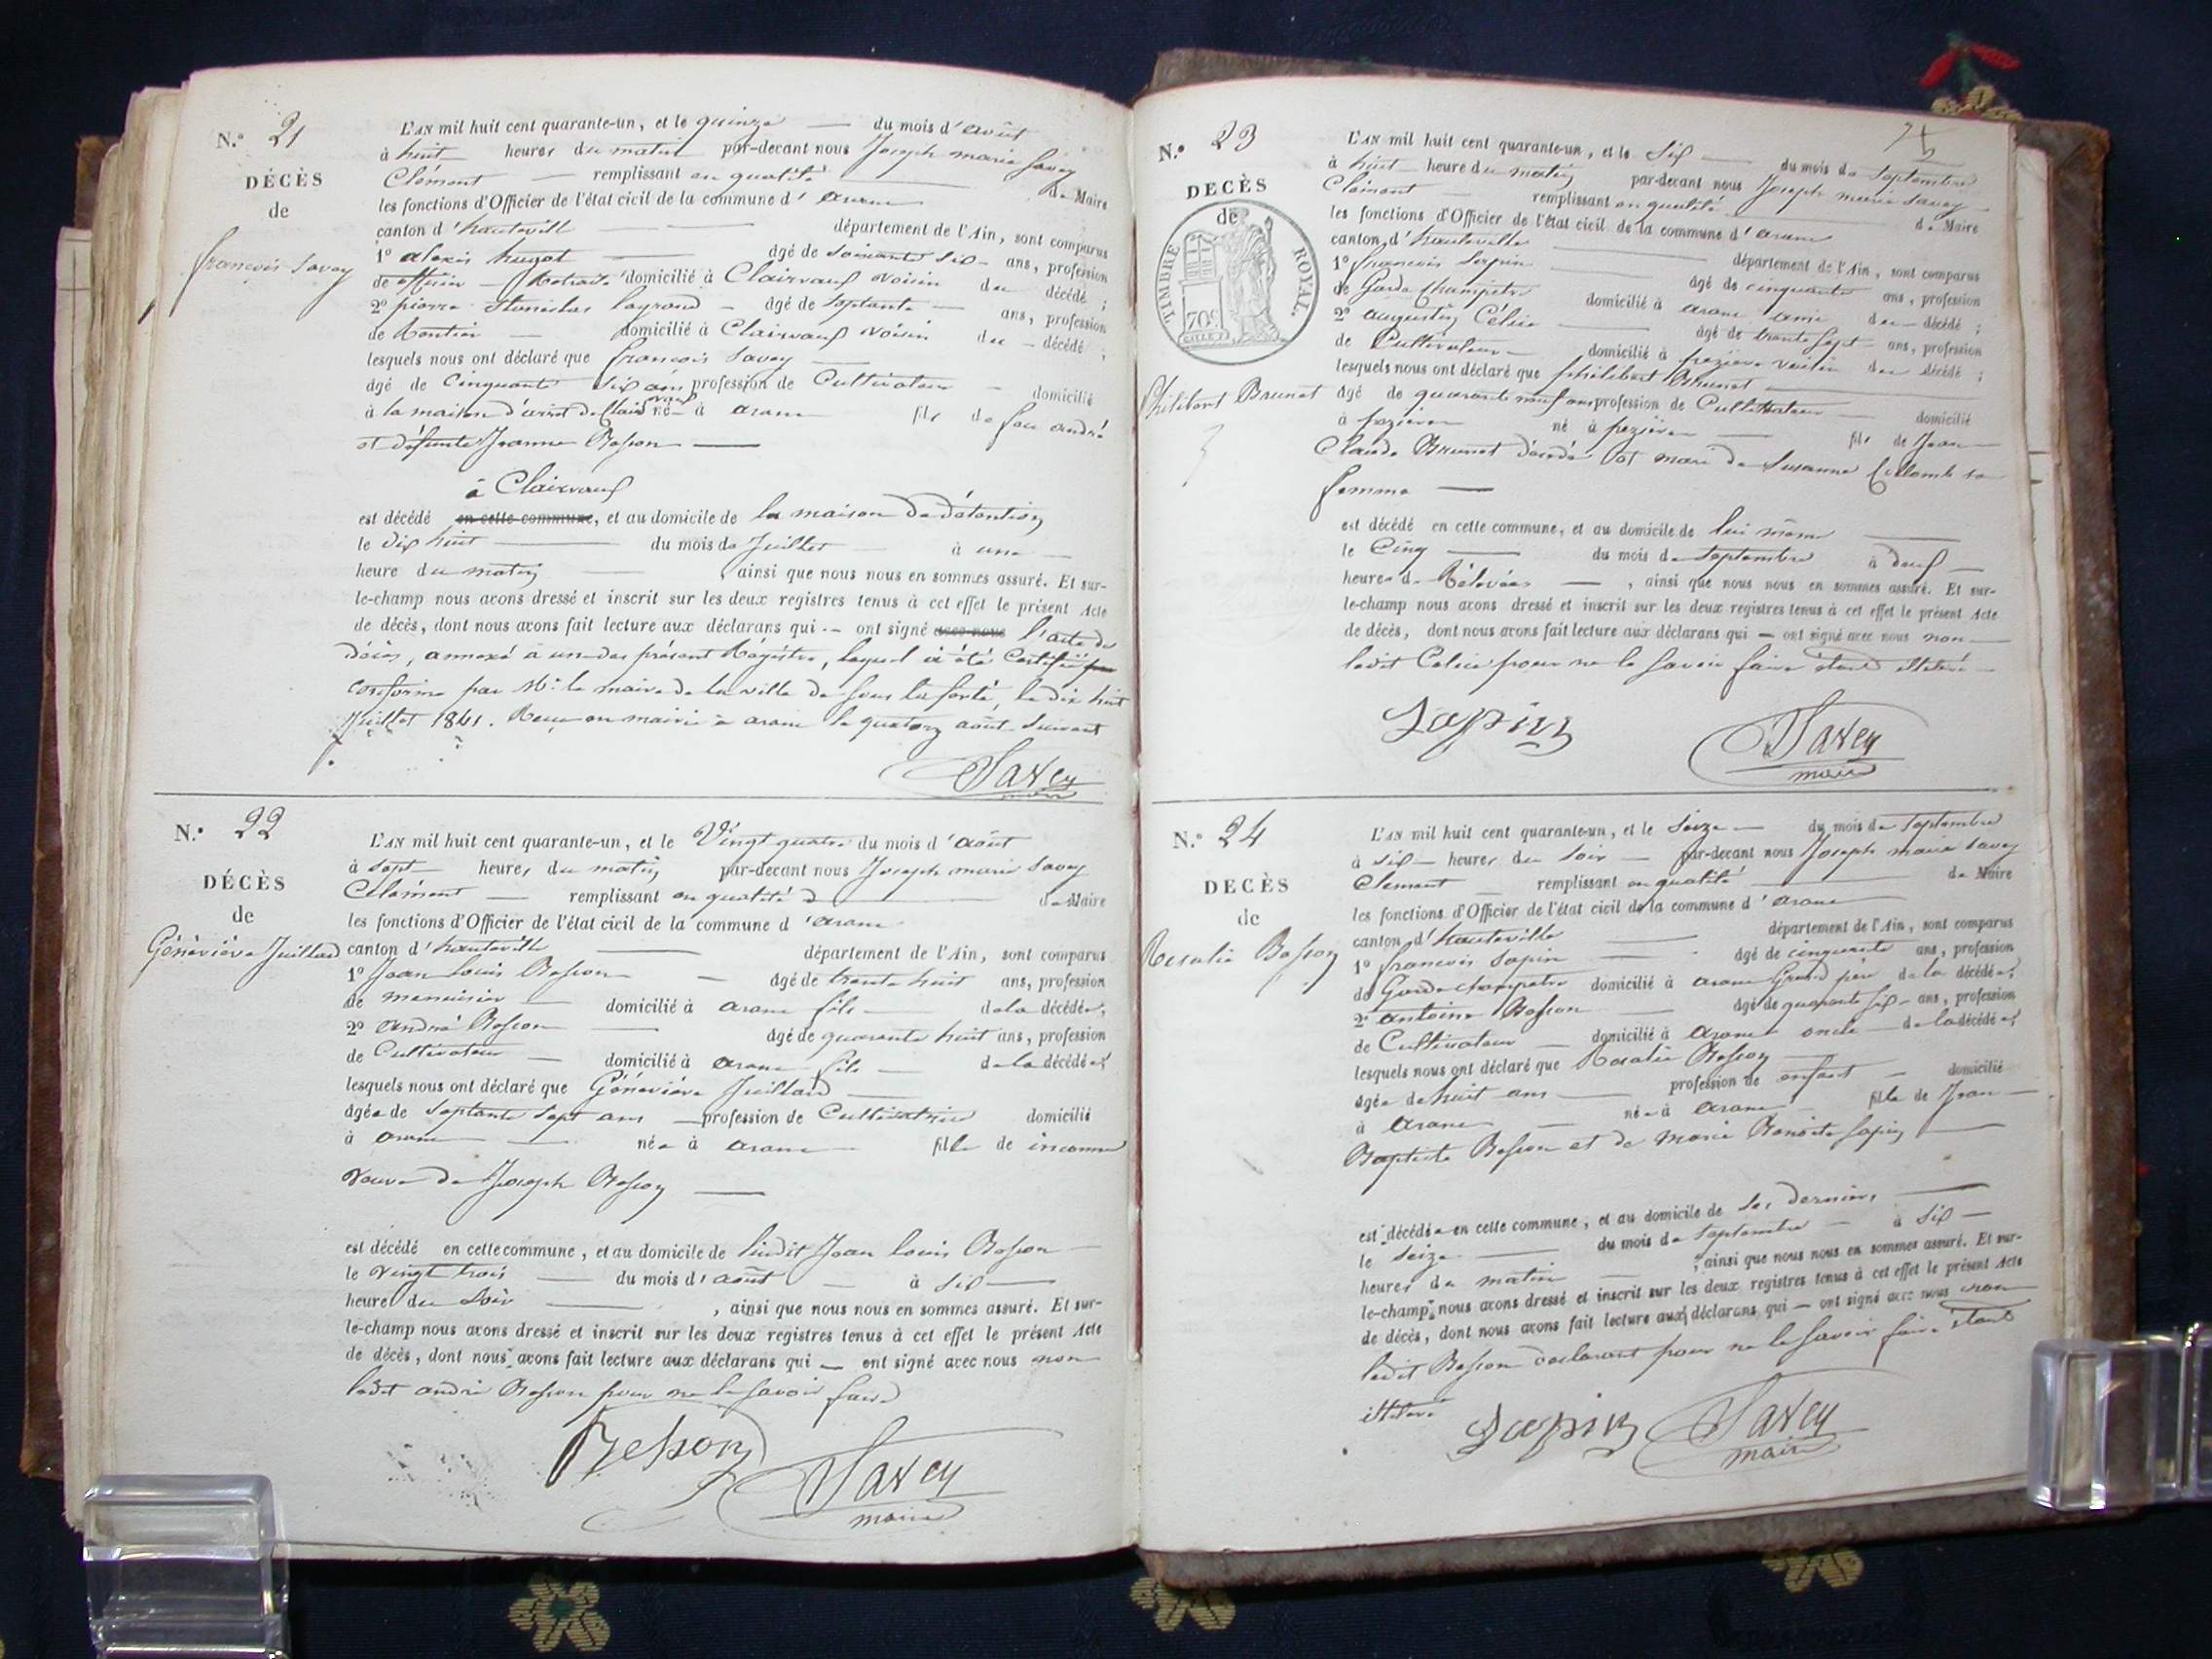 N.º 21
DÉCÈS
de
francois Savey
L'AN mil huit cent quarante-un, et le quinze du mois d'août
à huit heures du matin par-devant nous Joseph marie Savey
Clément remplissant en qualité de Maire
les fonctions d'Officier de l'état civil de la commune d'arane
canton d'hauteville département de l'Ain, sont comparus
1º alexis hugot âgé de soixante six ans, profession
de officier Retraité domicilié à Clairvaux voisin du décédé;
2º pierre Stanislas âgé de septante ans, profession
de Rentier domicilié à Clairvaux voisin du décédé;
lesquels nous ont déclaré que francois Savey
âgé de Cinquante six ans profession de Cultivateur domicilié
à la maison d'arrêt de Clairvaux né à arane fils de feu andré
et défunte Jeanne Besson
à Clairvaux
est décédé en cette commune, et au domicile de la maison de détention
le dix huit du mois de Juillet à une
heure du matin, ainsi que nous nous en sommes assuré. Et sur-
le-champ nous avons dressé et inscrit sur les deux registres tenus à cet effet le présent Acte
de décès, dont nous avons fait lecture aux déclarans qui ont signé avec nous l'acte de
décès, annexé à un des présent Régistre, lequel a été Certifié
Conforme par Mr. le maire de la ville de sous la ferté, le dix huit
Juillet 1841. Reçu en mairie à arane le quatorze août suivant
Savey
maire
N.º 22
DÉCÈS
de
Géneviève Juilland
L'AN mil huit cent quarante-un, et le Vingt quatre du mois d'août
à sept heures du matin par-devant nous Joseph marie Savey
Clément remplissant en qualité de Maire
les fonctions d'Officier de l'état civil de la commune d'arane
canton d'hauteville département de l'Ain, sont comparus
1º Jean louis Besson âgé de trente huit ans, profession
de menuisier domicilié à arane fils de la décédée;
2º andré Besson âgé de quarante huit ans, profession
de Cultivateur domicilié à arane fils de la décédée;
lesquels nous ont déclaré que Géneviève Juilland
âgée de septante sept ans profession de Cultivatrice domicilié
à arane née à arane fille de inconnu
veuve de Joseph Besson
est décédé en cette commune, et au domicile de ludit Jean louis Besson
le vingt trois du mois d'août à six
heures du soir, ainsi que nous nous en sommes assuré. Et sur-
le-champ nous avons dressé et inscrit sur les deux registres tenus à cet effet le présent Acte
de décès, dont nous avons fait lecture aux déclarans qui ont signé avec nous non
ledit andré Besson pour ne le savoir faire
Besson
Savey
maire
N.º 23
DÉCÈS
de
TIMBRE ROYAL.
70c
Philibert Brunet
L'AN mil huit cent quarante-un, et le six du mois de septembre
à huit heure du matin par-devant nous Joseph marie Savey
Clément remplissant en qualité de Maire
les fonctions d'Officier de l'état civil de la commune d'arane
canton d'hauteville département de l'Ain, sont comparus
1º francois Sapin âgé de cinquante ans, profession
de Garde Champêtre domicilié à arane ami du décédé;
2º augustin Célice âgé de trente sept ans, profession
de Cultivateur domicilié à voisin du décédé;
lesquels nous ont déclaré que philibert Brunet
âgé de quarante neuf ans profession de Cultivateur domicilié
à né à fils de Jean
Claude Brunet décédé et mari de Susanne Collomb sa
femme
est décédé en cette commune, et au domicile de lui même
le Cinq du mois de septembre à deux
heures de Rélevée, ainsi que nous nous en sommes assuré. Et sur-
le-champ nous avons dressé et inscrit sur les deux registres tenus à cet effet le présent Acte
de décès, dont nous avons fait lecture aux déclarans qui ont signé avec nous non
ledit Celice pour ne le savoir faire étant illétéré
Sapin
Savey
maire
N.º 24
DÉCÈS
de
Rosalie Besson
L'AN mil huit cent quarante-un, et le seize du mois de septembre
à six heures du soir par-devant nous Joseph marie Savey
Clement remplissant en qualité de Maire
les fonctions d'Officier de l'état civil de la commune d'arane
canton d'hauteville département de l'Ain, sont comparus
1º francois Sapin âgé de cinquante ans, profession
de Garde champetre domicilié à arane Grand père de la décédée;
2º antoine Besson âgé de quarante six ans, profession
de Cultivateur domicilié à arane oncle de la décédée;
lesquels nous ont déclaré que Rosalie Besson
âgée de huit ans profession de enfant domicilié
à arane née à arane fille de Jean
Baptiste Besson et de Marie Benoite Sapin
est décédée en cette commune, et au domicile de ses derniers
le seize du mois de septembre à six
heures du matin, ainsi que nous nous en sommes assuré. Et sur-
le-champ nous avons dressé et inscrit sur les deux registres tenus à cet effet le présent Acte
de décès, dont nous avons fait lecture aux déclarans qui ont signé avec nous non
ledit Besson declarant pour ne le savoir faire étant
illetéré
Sapin
Savey
maire